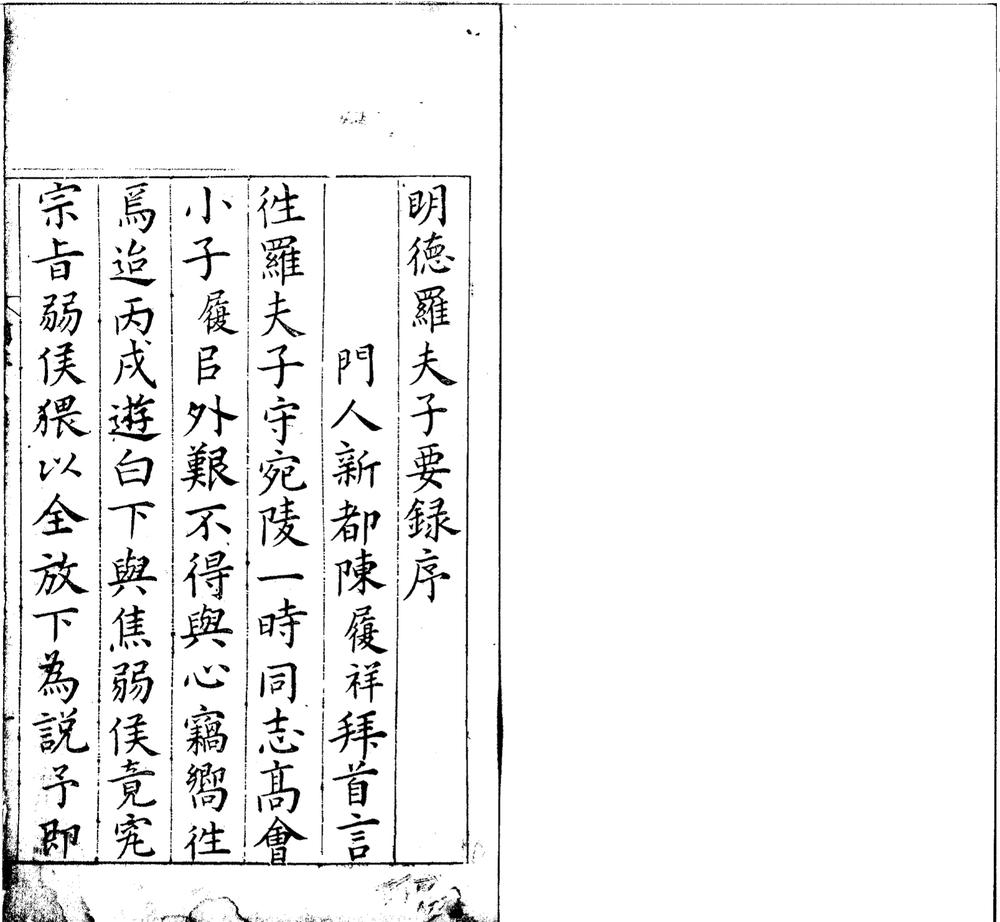 明德羅夫子要録序
門人新都陳履祥拜首言
徃羅夫子守宛陵一時同志髙會
小子履㠯外艱不得與心竊嚮徃
焉迨丙戌遊白下與焦弱侯竟究
宗旨弱侯猥以全放下為説予即